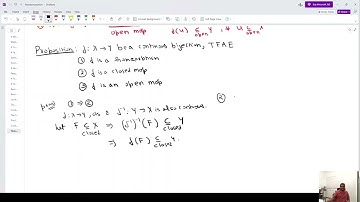 open map f(U) ⊆ open Y, ∀ U ⊆ open X
Proposition: f: X → Y be a continuous bijection, TFAE
① f is a homeomorphism
② f is a closed map
③ f is an open map
proof ① ⇒ ②
f: X → Y, as f⁻¹: Y → X is also continuous.
Let F ⊆ closed X ⇒ (f⁻¹)⁻¹(F) ⊆ closed Y
⇒ f(F) ⊆ closed Y.